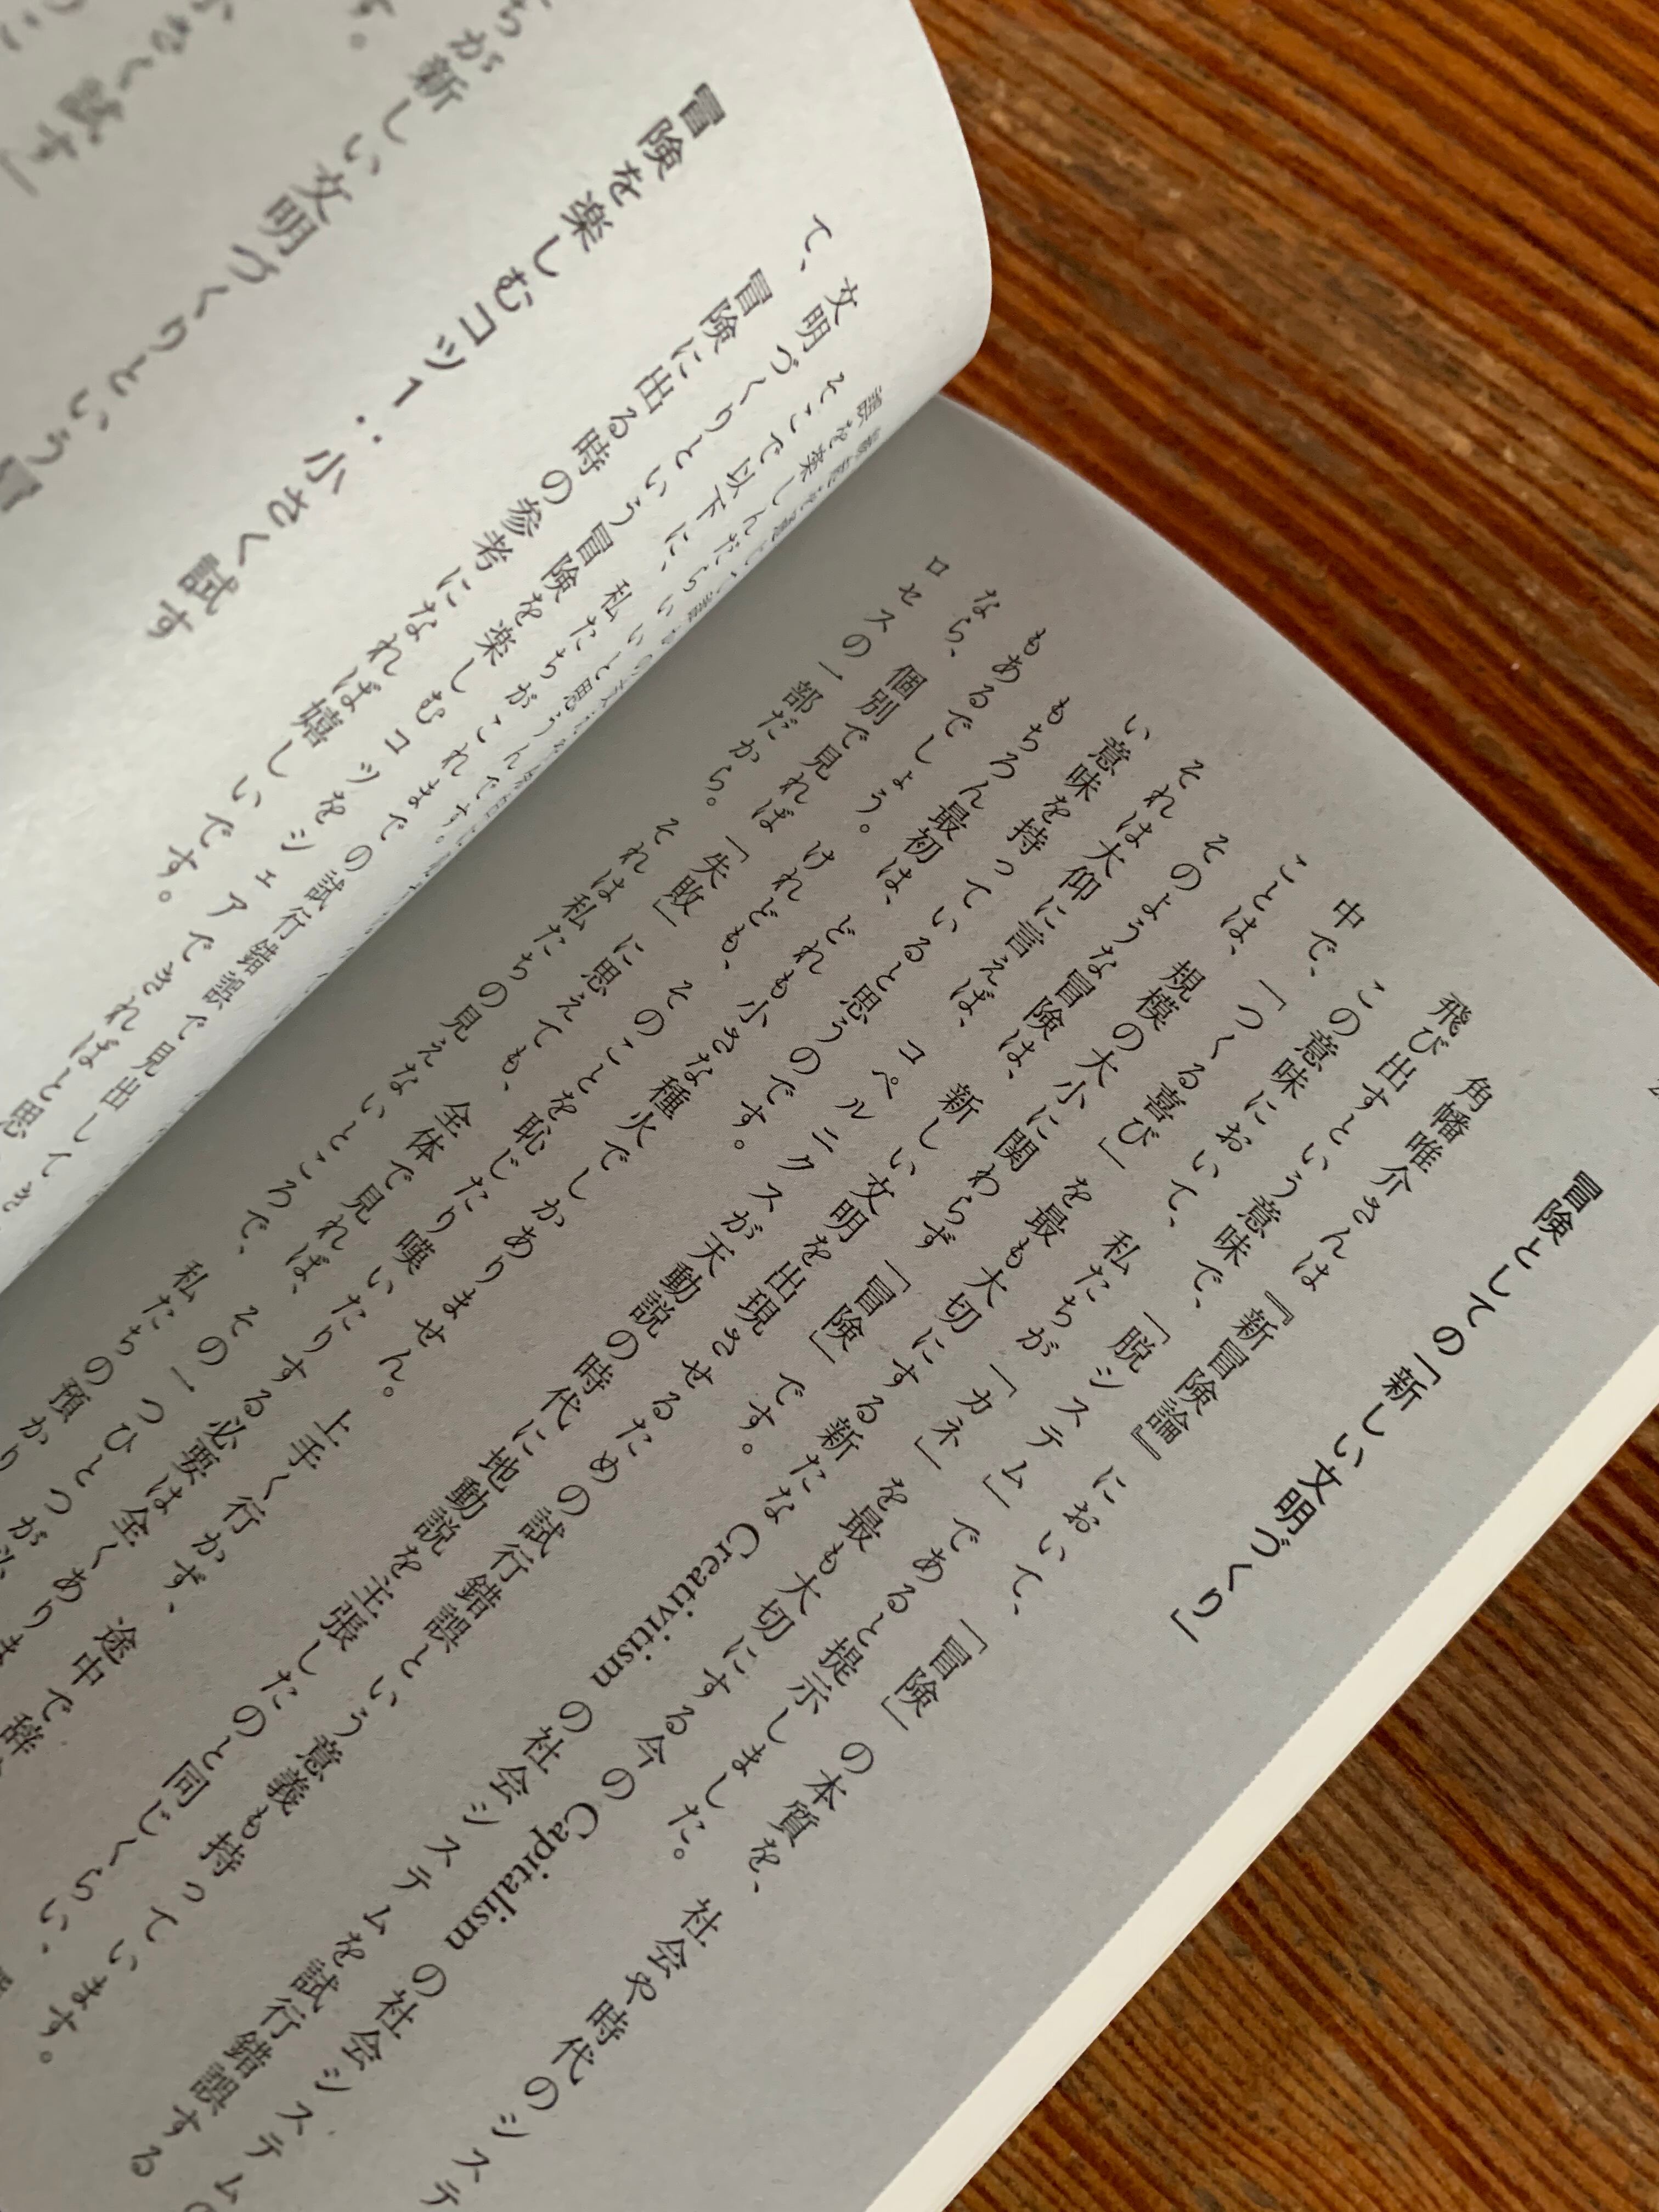 冒険としての「新しい文明づくり」
角幡唯介さんは『新冒険論』において、「冒険」の本質を、社会や時代のシステ
飛び出すという意味で、「脱システム」であると提示しました。
この意味において、私たちが「カネ」を最も大切にする今の Capitalism の社会システム
中で、「つくる喜び」を最も大切にする新たな Creativitism の社会システムを試行錯誤する
ことは、規模の大小に関わらず「冒険」です。
そのような冒険は、新しい文明を出現させるための試行錯誤という意義も持っています。
それは大仰に言えば、コペルニクスが天動説の時代に地動説を主張したのと同じくらい、
い意味を持っていると思うのです。
もちろん最初は、どれも小さな種火でしかありません。上手く行かず、途中で辞
もあるでしょう。けれども、そのことを恥じたり嘆いたりする必要は全くありま
なら、個別で見れば「失敗」に思えても、全体で見れば、その一つひとつが
ロセスの一部だから。それは私たちの見えないところで、私たちの預かり
誤を楽しんだらいい と思うんです。
そこで以下に、私たちがこれまでの試行錯誤で見出してき
て、文明づくりという冒険を楽しむコツをシェアできればと思
冒険に出る時の参考になれば嬉しいです。
冒険を楽しむコツ1：小さく試す
ちが新しい文明づくりという
す。
小さく試す」